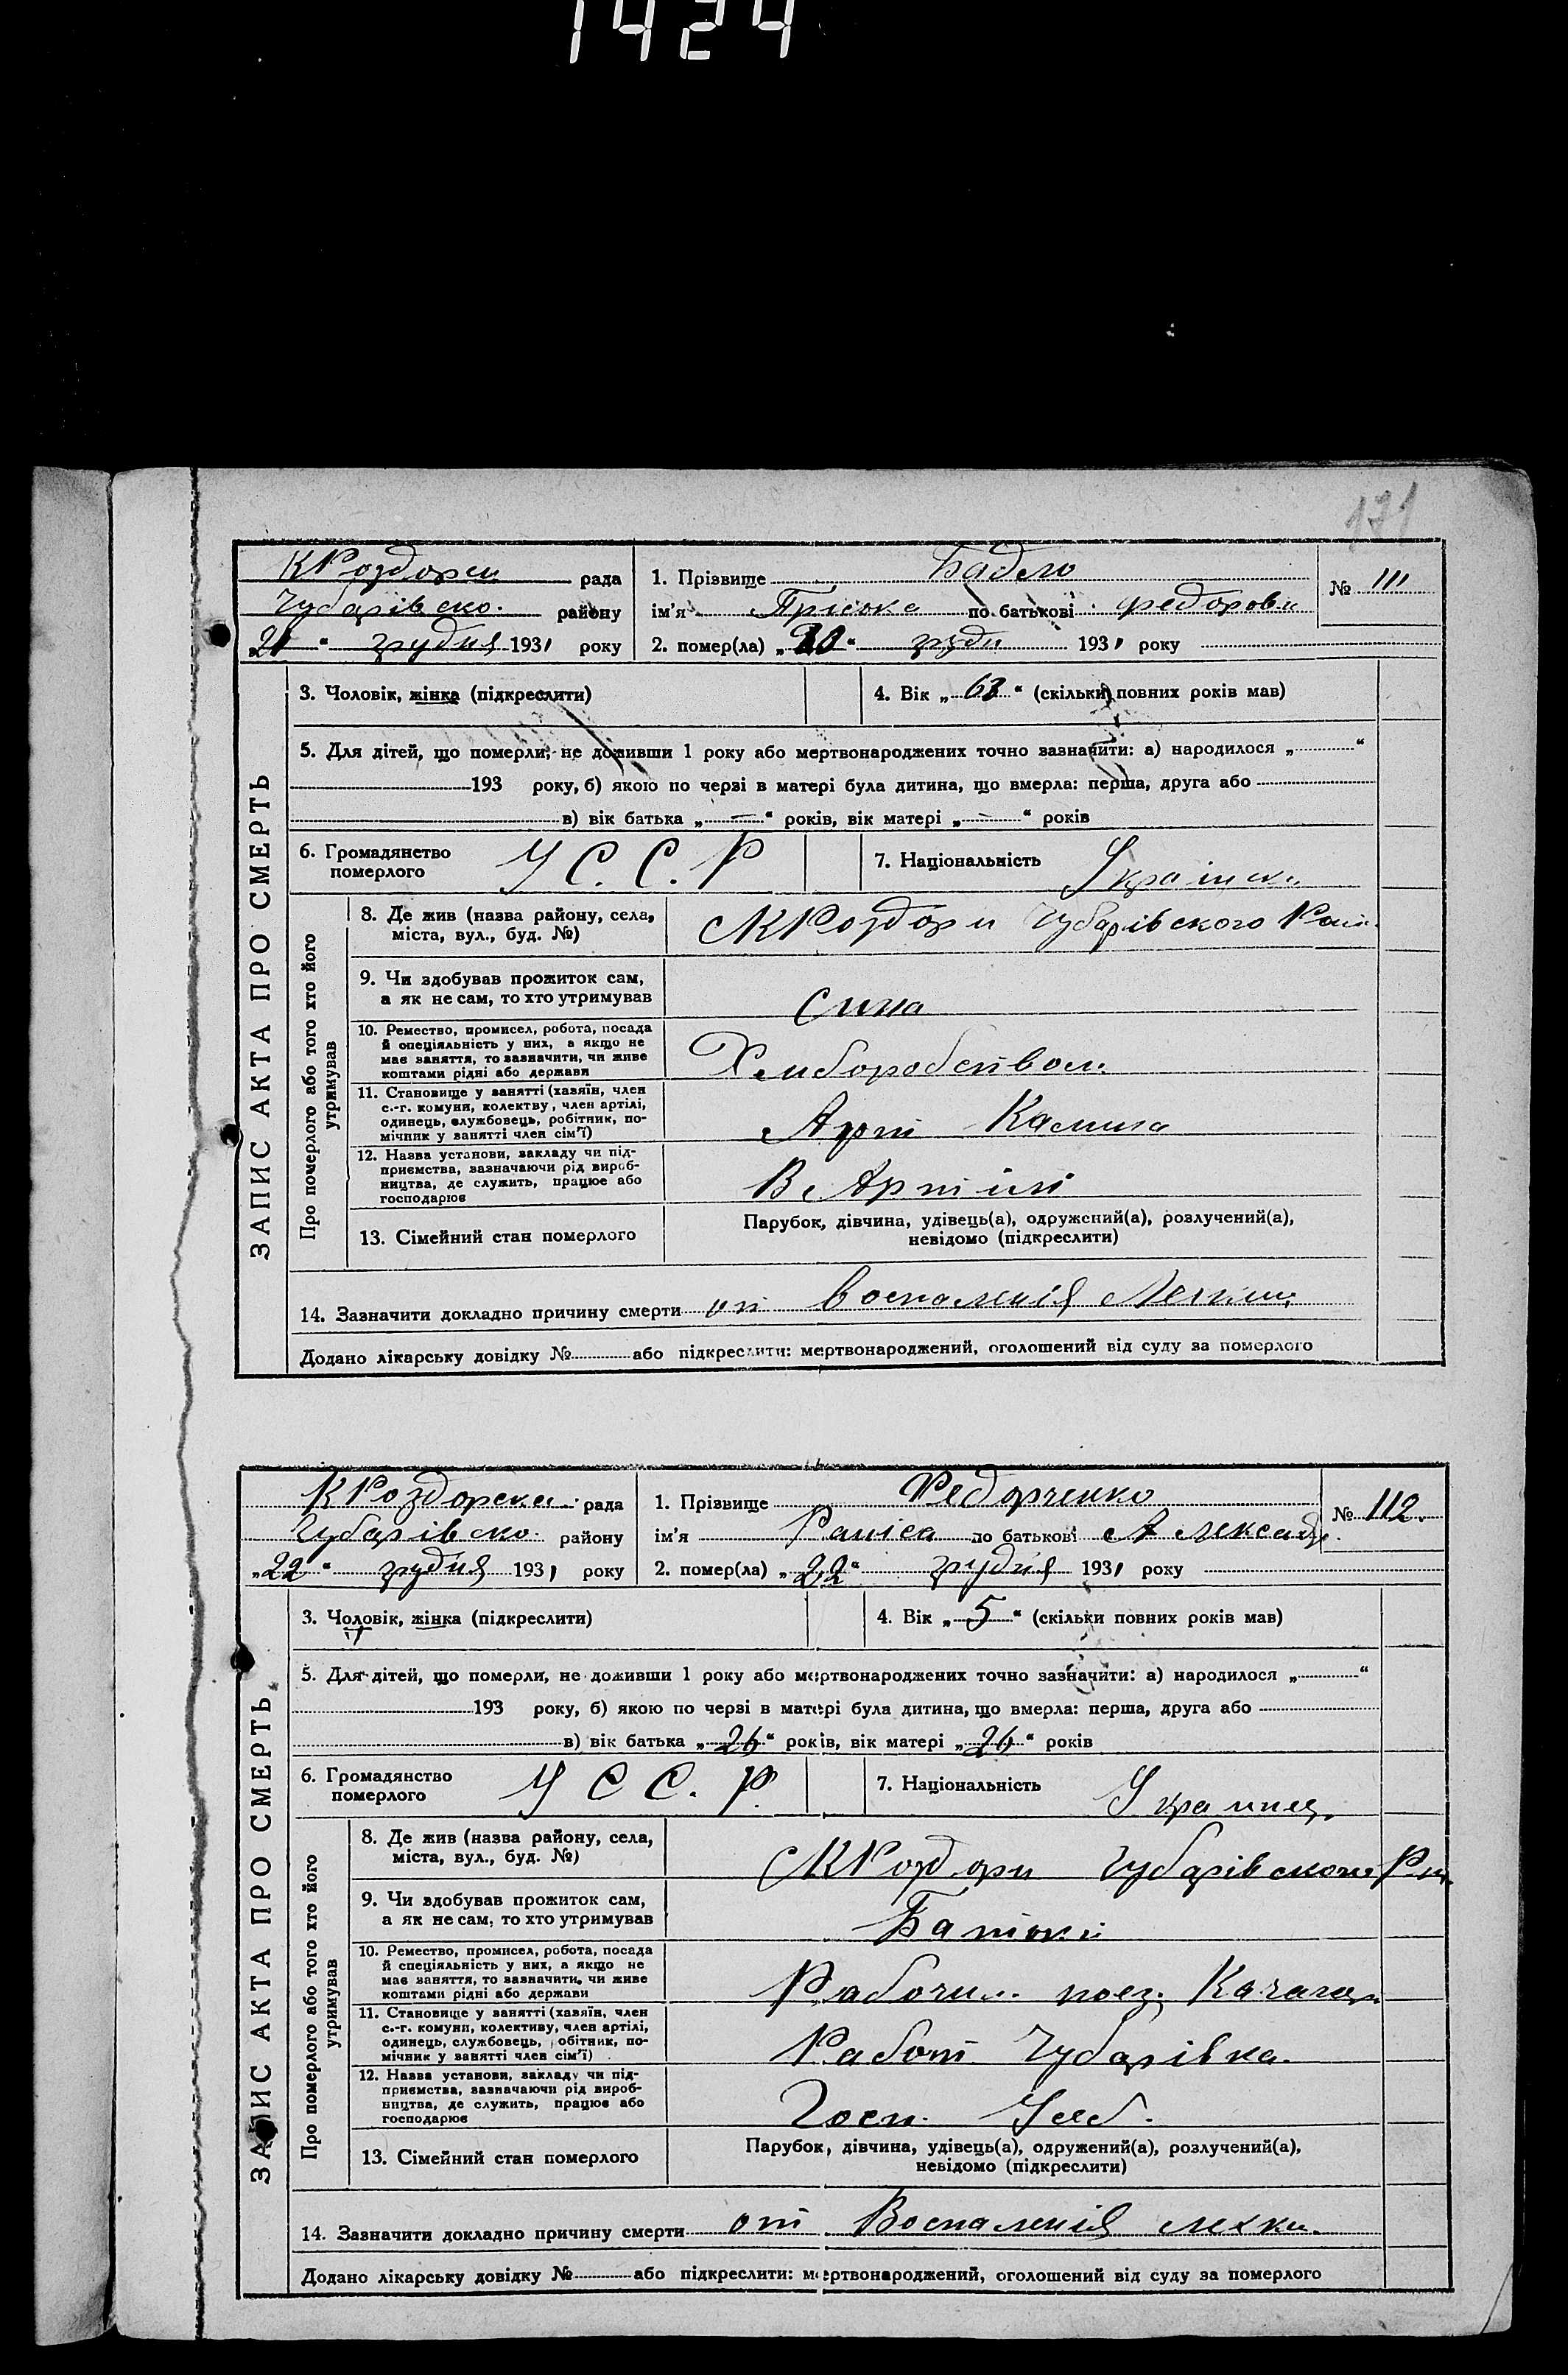 1424
171
КРоздорск рада
Чубарівско. району
„21“ грудня 1931 року
1. Прізвище Бадело
ім'я Пріська по батькові Федоровн
№ 111
2. помер(ла) „20“ грудн 1931 року
ЗАПИС АКТА ПРО СМЕРТЬ
3. Чоловік, жінка (підкреслити)
4. Вік „63“ (скільки повних років мав)
5. Для дітей, що померли, не доживши 1 року або мертвонароджених точно зазначити: а) народилося „ “
193 року, б) якою по черзі в матері була дитина, що вмерла: перша, друга або
в) вік батька „—“ років, вік матері „—“ років
6. Громадянство
померлого
У С. С. Р
7. Національність
Україн
Про померлого або того хто його
утримував
8. Де жив (назва району, села,
міста, вул., буд. №)
с КРоздори Чубарівского Рай.
9. Чи здобував прожиток сам,
а як не сам, то хто утримував
сина
10. Ремество, промисел, робота, посада
й спеціяльність у них, а якщо не
має заняття, то зазначити, чи живе
коштами рідні або держави
Хлиборобством
11. Становище у занятті (хазяїн, член
с.-г. комуни, колектву, член артілі,
одинець, службовець, робітник, по-
мічник у занятті член сім'ї)
Арт
12. Назва установи, закладу чи під-
приємства, зазначаючи рід вироб-
ництва, де служить, працює або
господарює
В Артілі
13. Сімейний стан померлого
Парубок, дівчина, удівець(а), одружений(а), розлучений(а),
невідомо (підкреслити)
14. Зазначити докладно причину смерти от воспаленія Легких
Додано лікарську довідку № або підкреслити: мертвонароджений, оголошений від суду за померлого
КРоздорска рада
Чубарівско. району
„22“ грудня 1931 року
1. Прізвище Федорченко
ім'я Раиса по батькові Александр.
№ 112.
2. помер(ла) „22“ грудня 1931 року
ЗАПИС АКТА ПРО СМЕРТЬ
3. Чоловік, жінка (підкреслити)
4. Вік „5“ (скільки повних років мав)
5. Для дітей, що померли, не доживши 1 року або мертвонароджених точно зазначити: а) народилося „ “
193 року, б) якою по черзі в матері була дитина, що вмерла: перша, друга або
в) вік батька „26“ років, вік матері „26“ років
6. Громадянство
померлого
У С С. Р.
7. Національність
Украинец.
Про померлого або того хто його
утримував
8. Де жив (назва району, села,
міста, вул., буд. №)
с КРоздори Чубарівского Рай.
9. Чи здобував прожиток сам,
а як не сам, то хто утримував
Батьки
10. Ремество, промисел, робота, посада
й спеціяльність у них, а якщо не
має заняття, то зазначити, чи живе
коштами рідні або держави
Рабочим
11. Становище у занятті (хазяїн, член
с.-г. комуни, колективу, член артілі,
одинець, службовець, робітник, по-
мічник у занятті член сім'ї)
Работ Чубарівка.
12. Назва установи, закладу чи під-
приємства, зазначаючи рід вироб-
ництва, де служить, працює або
господарює
13. Сімейний стан померлого
Парубок, дівчина, удівець(а), одружений(а), розлучений(а),
невідомо (підкреслити)
14. Зазначити докладно причину смерти от Воспаленія легки.
Додано лікарську довідку № або підкреслити: мертвонароджений, оголошений від суду за померлого